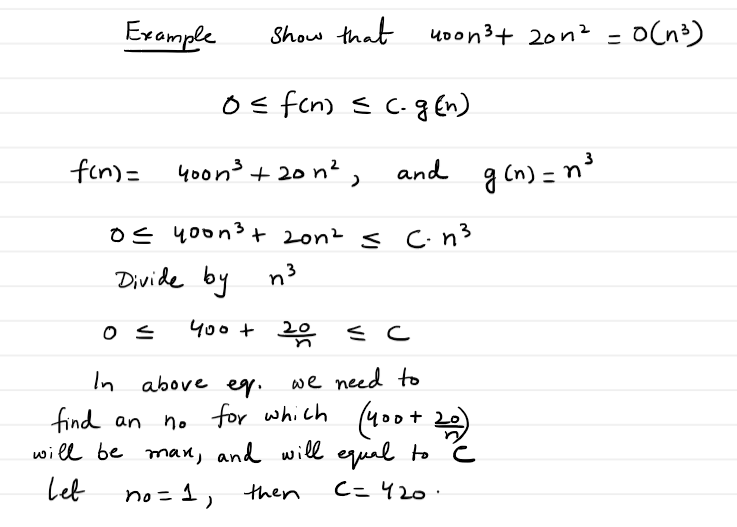 Example Show that 400n³ + 20n² = O(n³)
0 ≤ f(n) ≤ C. g(n)
f(n) = 400n³ + 20n², and g(n) = n³
0 ≤ 400n³ + 20n² ≤ C. n³
Divide by n³
0 ≤ 400 + 20/n ≤ C
In above eq. we need to
find an no for which (400 + 20/n)
will be max, and will equal to C
Let no = 1, then C = 420.